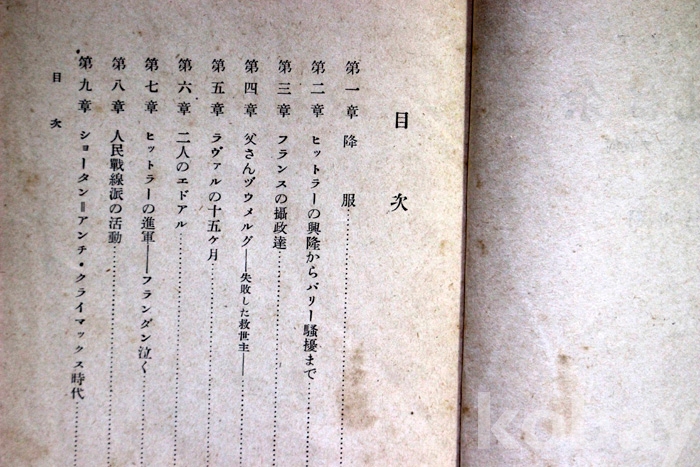 目次
第一章 降服
第二章 ヒットラーの興隆からパリー騷擾まで
第三章 フランスの攝政達
第四章 父さんヅウメルグ――失敗した救世主――
第五章 ラヴァルの十五ケ月
第六章 二人のエドアル
第七章 ヒットラーの進軍――フランダン泣く
第八章 人民戰線派の活動
第九章 ショータン＝アンチ・クライマックス時代
目次
kobay